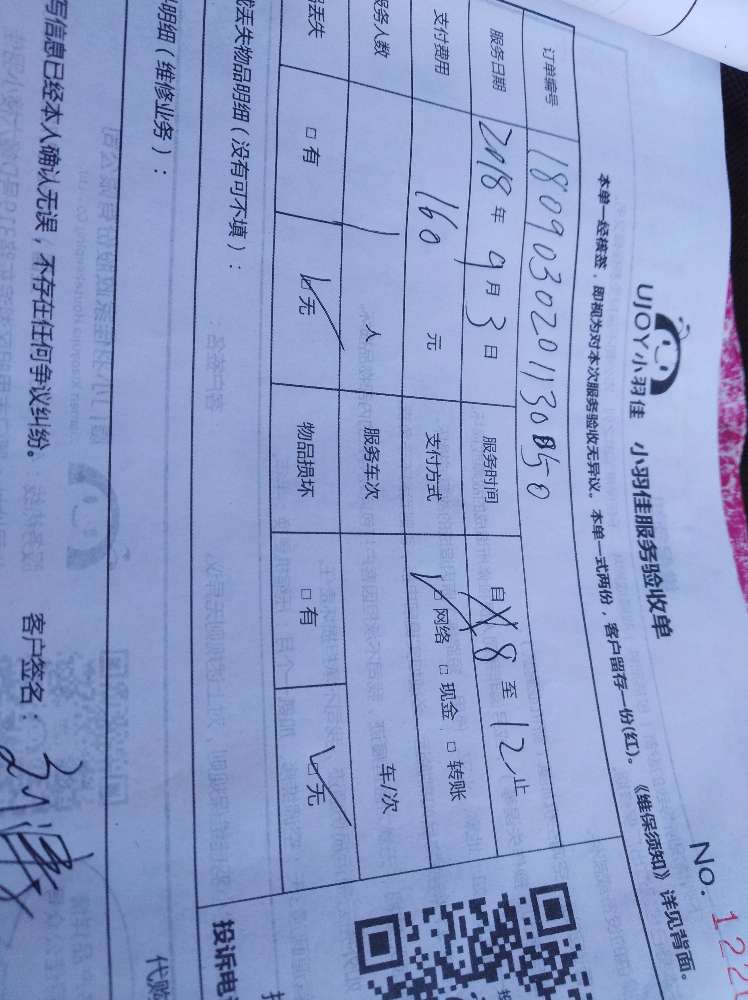 No. 122
UJOY小羽佳 小羽佳服务验收单
本单一经核签，即视为对本次服务验收无异议。本单一式两份，客户留存一份(红)。《维保须知》详见背面。
订单编号 1809030201130850
服务日期 2018年9月3日 服务时间 自8至12止
支付费用 160元 支付方式 ☑网络 □现金 □转账
服务人数 1人 服务车次 车/次
丢失 □有 ☑无 物品损坏 □有 ☑无
丢失物品明细（没有可不填）：
明细（维修业务）：
写信息已经本人确认无误，不存在任何争议纠纷。 客户签名：
投诉电
代购